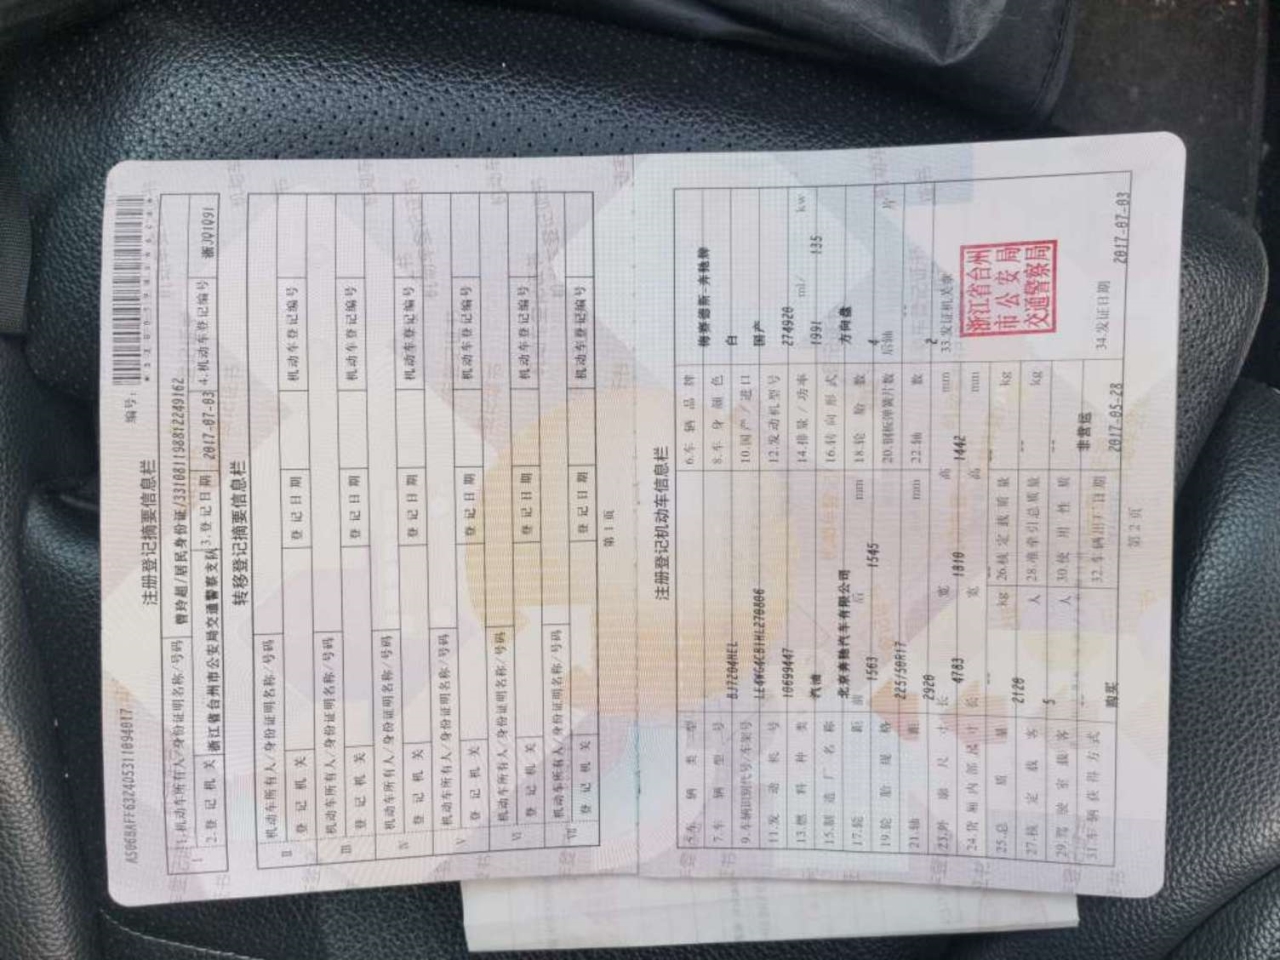 A506BAFF63240531109401?
编号:
注册登记摘要信息栏
I 1.机动车所有人/身份证明名称/号码 曾玲超/居民身份证/331081198812249162
2.登记机关 浙江省台州市公安局交通警察支队 3.登记日期 2017-07-03 4.机动车登记编号 浙JQ1Q91
转移登记摘要信息栏
II 机动车所有人/身份证明名称/号码
登记机关 登记日期 机动车登记编号
III 机动车所有人/身份证明名称/号码
登记机关 登记日期 机动车登记编号
IV 机动车所有人/身份证明名称/号码
登记机关 登记日期 机动车登记编号
V 机动车所有人/身份证明名称/号码
登记机关 登记日期 机动车登记编号
VI 机动车所有人/身份证明名称/号码
登记机关 登记日期 机动车登记编号
VII 机动车所有人/身份证明名称/号码
登记机关 登记日期 机动车登记编号
第 1 页
注册登记机动车信息栏
5.车辆类型 6.车辆品牌 梅赛德斯-奔驰牌
7.车辆型号 BJ7204HEL 8.车身颜色 白
9.车辆识别代号/车架号 LE4WG4CB1HL270806 10.国产/进口 国产
11.发动机号 10699447 12.发动机型号 274920
13.燃料种类 汽油 14.排量/功率 1991 ml/ 135 kw
15.制造厂名称 北京奔驰汽车有限公司 16.转向形式 方向盘
17.轮距 前 1563 后 1545 mm 18.轮胎数 4
19.轮胎规格 225/50R17 20.钢板弹簧片数 后轴 片
21.轴距 2920 mm 22.轴数 2
23.外廓尺寸 长 4783 宽 1810 高 1442 mm 33.发证机关章
24.货厢内部尺寸 长 宽 高 mm
浙江省台州
市公安局
交通警察局
25.总质量 2120 kg 26.核定载质量 -- kg
27.核定载客 5 人 28.准牵引总质量 -- kg
29.驾驶室载客 -- 人 30.使用性质 非营运
31.车辆获得方式 购买 32.车辆出厂日期 2017-05-28 34.发证日期 2017-07-03
第 2 页